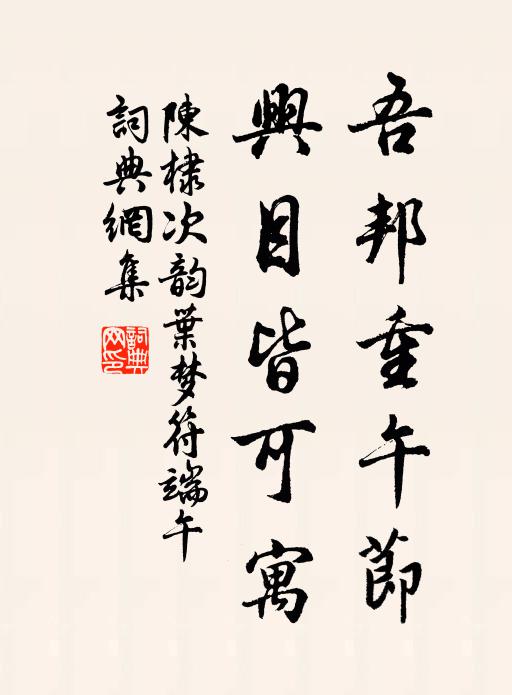 吾邦重午節
興目皆可寓
陳棣次韵葉梦符端午
詞典網集
詞典网印